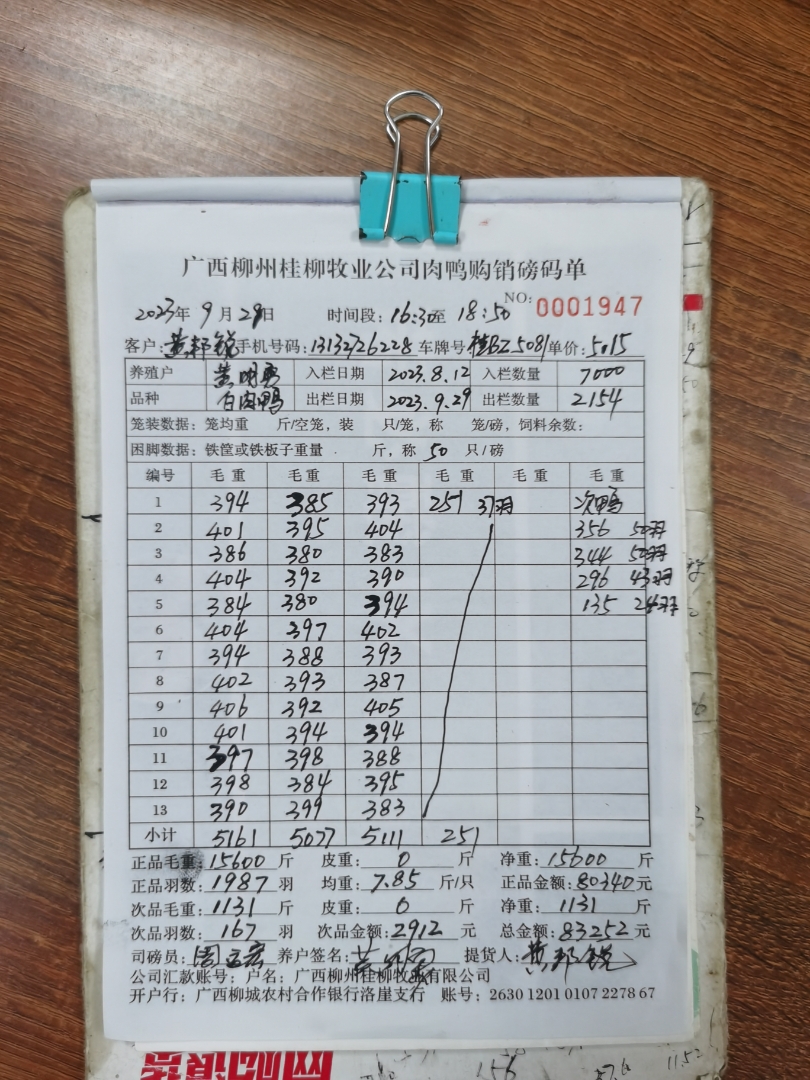 广西柳州桂柳牧业公司肉鸭购销磅码单
NO: 0001947
2023年 9 月 29日 时间段: 16:30至 18:50
客户: 黄邦锐 手机号码: 13132726228 车牌号 桂BZ5081 单价: 5.15
养殖户 黄明勇 入栏日期 2023.8.12 入栏数量 7000
品种 白肉鸭 出栏日期 2023.9.29 出栏数量 2154
笼装数据: 笼均重 斤/空笼, 装 只/笼, 称 笼/磅, 饲料余数:
困脚数据: 铁筐或铁板子重量 斤, 称 50 只/磅
编号 毛重 毛重 毛重 毛重 毛重 毛重
1 394 385 393 251 37羽 次鸭
2 401 395 404 356 50羽
3 386 380 383 344 50羽
4 404 392 390 296 43羽
5 384 380 394 135 24羽
6 404 397 402
7 394 388 393
8 402 393 387
9 406 392 405
10 401 394 394
11 397 398 388
12 398 384 395
13 390 399 383
小计 5161 5077 5111 251
正品毛重: 15600 斤 皮重: 0 斤 净重: 15600 斤
正品羽数: 1987 羽 均重: 7.85 斤/只 正品金额: 80340 元
次品毛重: 1131 斤 皮重: 0 斤 净重: 1131 斤
次品羽数: 167 羽 次品金额: 2912 元 总金额: 83252 元
司磅员: 周 养户签名: 黄 提货人: 黄邦锐
公司汇款账号: 户名: 广西柳州桂柳牧业有限公司
开户行: 广西柳城农村合作银行洛崖支行 账号: 2630 1201 0107 2278 67
156
11.52